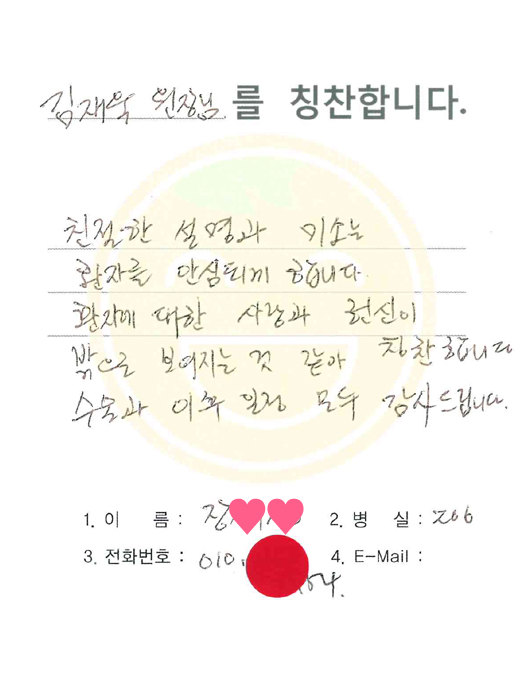 김재욱 원장님 를 칭찬합니다.
친절한 설명과 미소는
환자를 안심되게 합니다.
환자에 대한 사랑과 헌신이
밖으로 보여지는 것 같아 칭찬합니다
수술과 이후 일정 모두 감사드립니다.
1. 이 름 : 장 2. 병 실 : 206
3. 전화번호 : 010. 4. E-Mail :